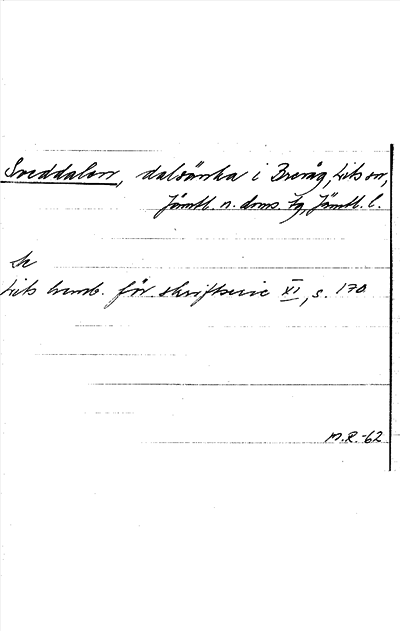 Sveddalen, dalsänka i Brevåg, Lits sn,
Jämtl. n. doms. tg, Jämtl. l.
Se
Lits hemb. för. skriftserie XI, s. 170
M.R.-62